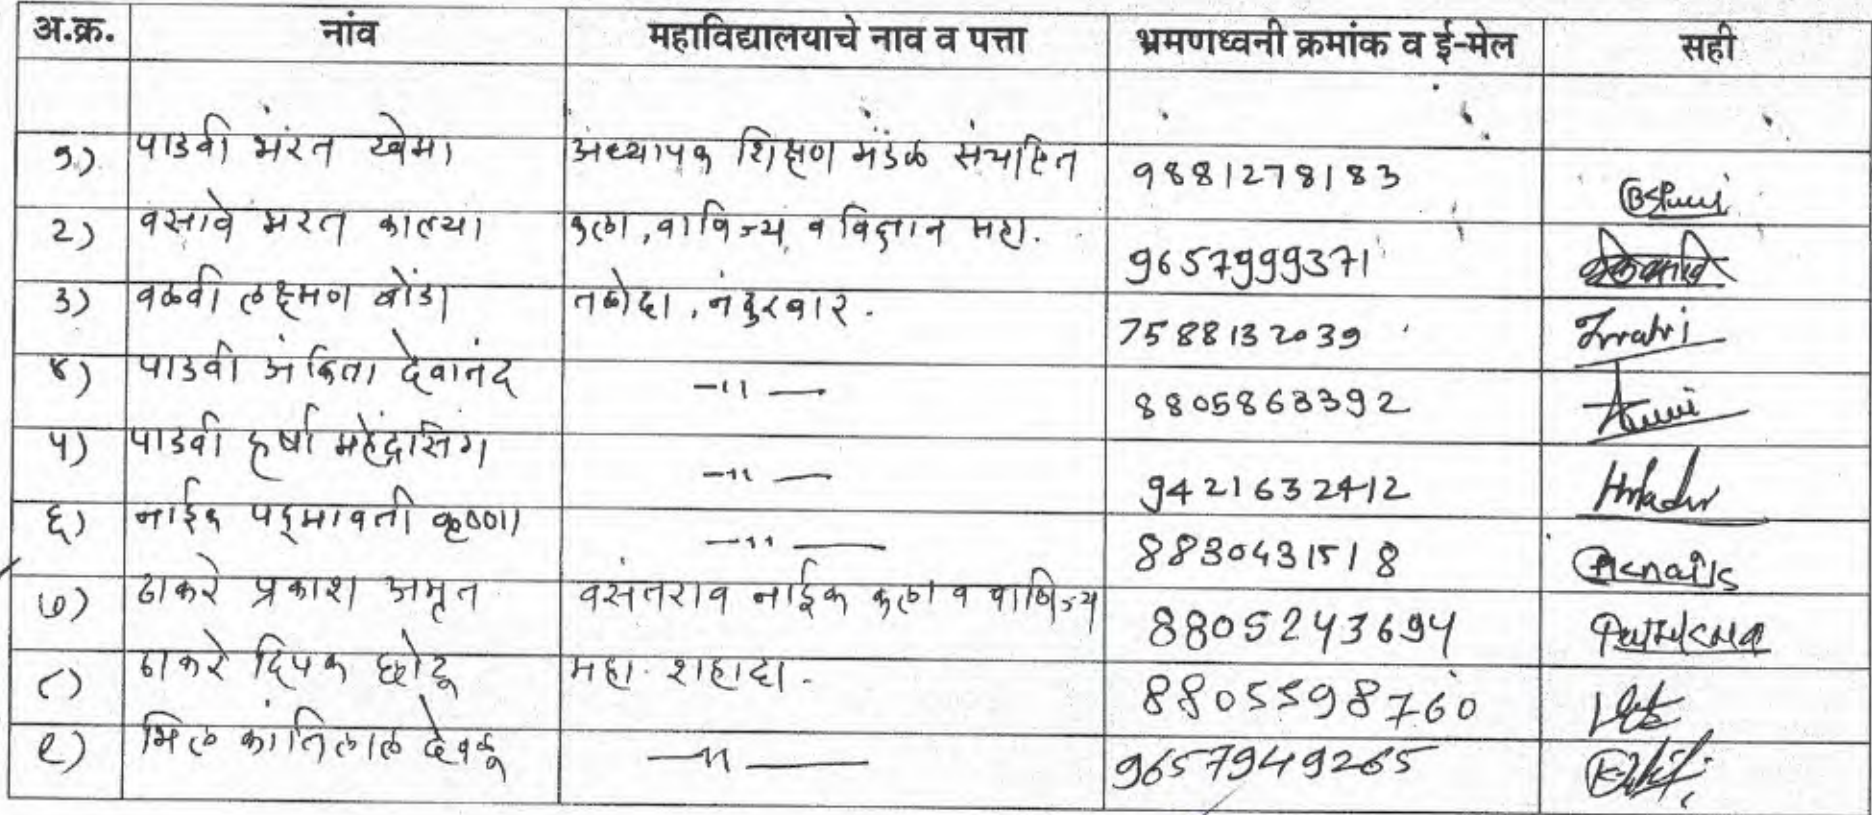 अ.क्र. नांव महाविद्यालयाचे नाव व पत्ता भ्रमणध्वनी क्रमांक व ई-मेल सही
१) पाडवी भरत खेमा अध्यापक शिक्षण मंडळ संचलित 9881278183
२) वसावे भरत कालया कला, वाणिज्य व विज्ञान महा. 9657999371
३) वळवी लक्ष्मण बोंडा तळोदा, नंदुरबार. 7588132039
४) पाडवी अंकिता देवानंद —"— 8805863392
५) पाडवी हर्षा महेंद्रसिंग —"— 9421632412
६) नाईक पद्मावती कृष्णा —"— 8830431518
७) ठाकरे प्रकाश अमृत वसंतराव नाईक कला व वाणिज्य 8805243694
८) ठाकरे दिपक छोटू महा. शहादा. 8805598760
९) भिल कांतिलाल देवळू —"— 9657949265